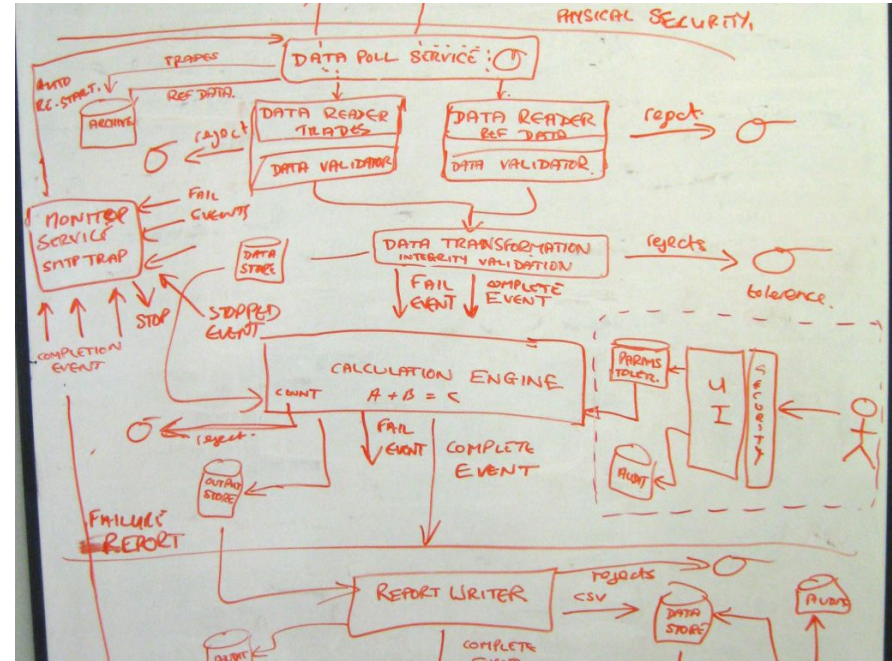 PHYSICAL SECURITY,
DATA POLL SERVICE
TRADES
REF DATA.
AUTO
RE-START.
ARCHIVE
DATA READER
TRADES
DATA VALIDATOR
DATA READER
REF DATA
DATA VALIDATOR
reject
reject.
MONITOR
SERVICE
SMTP TRAP
FAIL
EVENTS
DATA
STORE
DATA TRANSFORMATION
INTEGRITY VALIDATION
rejects
tolerence.
FAIL
EVENT
COMPLETE
EVENT
STOP
STOPPED
EVENT
COMPLETION
EVENT
CALCULATION ENGINE
A + B = C
COUNT
PARAMS
TOLER.
UI
SECURITY
AUDIT
reject.
FAIL
EVENT
COMPLETE
EVENT
OUTPUT
STORE
FAILURE
REPORT
REPORT WRITER
rejects
CSV
DATA
STORE
AUDIT
AUDIT
COMPLETE
EVENT